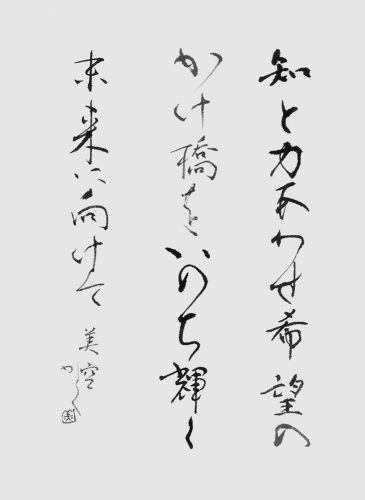 知と力あわせ希望の
かけ橋をいのち輝く
未来に向けて
美空